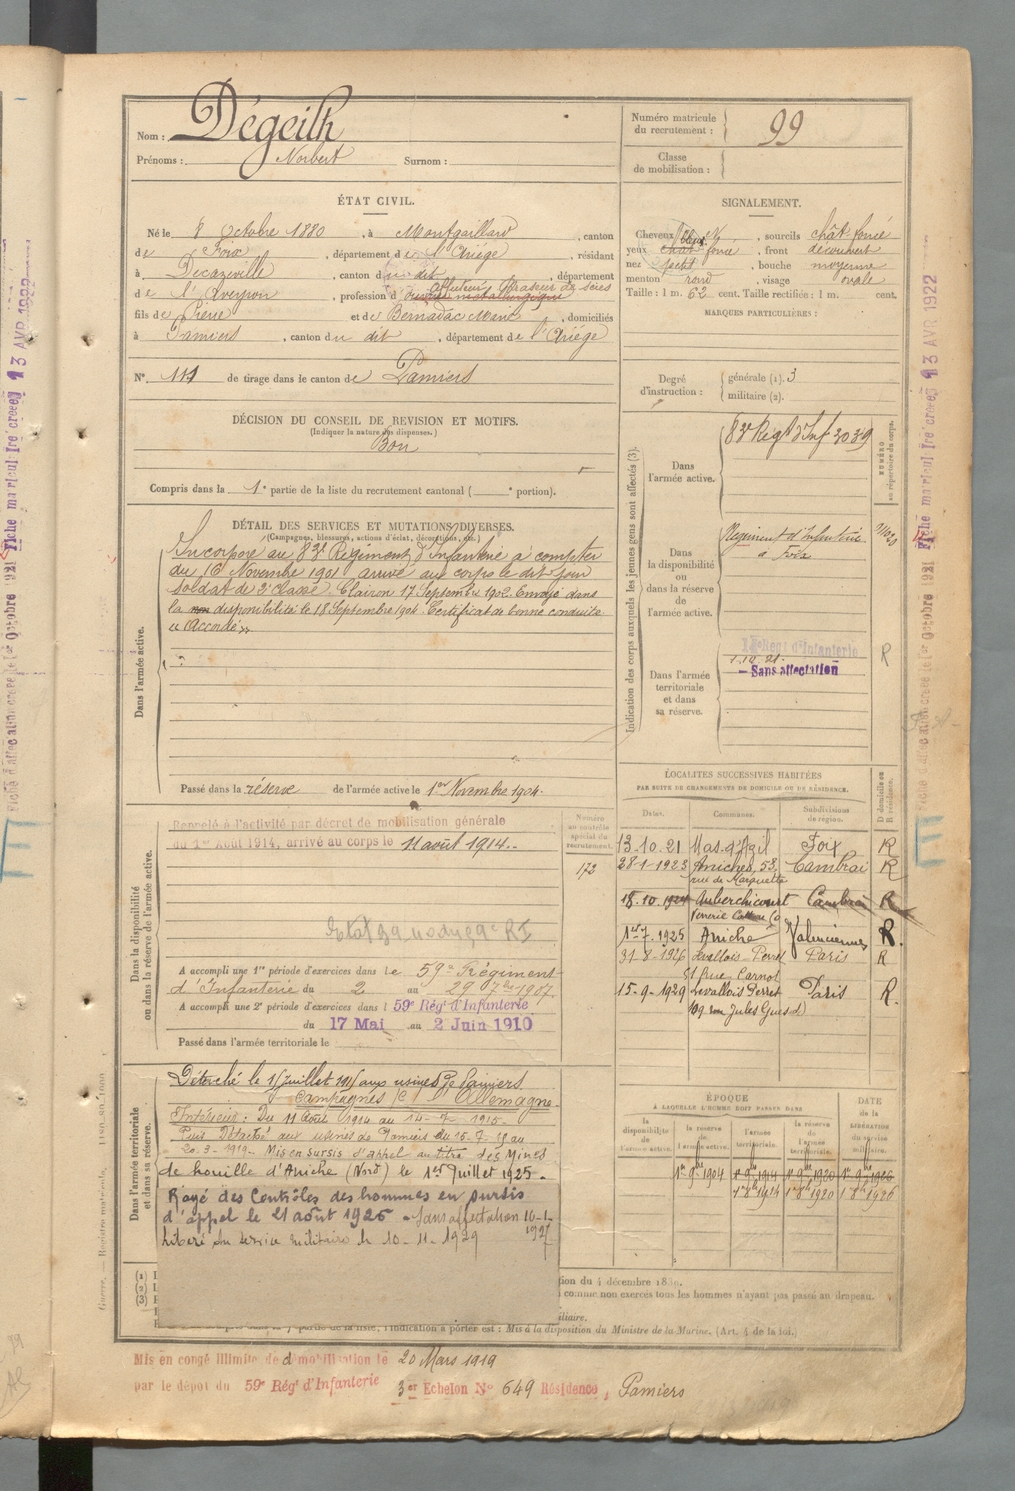 Nom : Dégeilh
Prénoms : Norbert Surnom :
Numéro matricule du recrutement : 99
Classe de mobilisation :
ÉTAT CIVIL.
Né le 8 Octobre 1880, à Montgaillard, canton
de Foix, département de l'Ariège, résidant
à Decazeville, canton du dit, département
de l'Aveyron, profession d
fils de Pierre et de Bernadac Marie, domiciliés
à Pamiers, canton du dit, département de l'Ariège
N° 111 de tirage dans le canton de Pamiers
SIGNALEMENT.
Cheveux, sourcils chât foncé
yeux foncé, front découvert
nez petit, bouche moyenne
menton rond, visage ovale
Taille : 1 m. 62 cent. Taille rectifiée : 1 m. cent.
MARQUES PARTICULIÈRES :
Degré d'instruction : générale (1). 3
militaire (2).
DÉCISION DU CONSEIL DE REVISION ET MOTIFS.
(Indiquer la nature des dispenses.)
Bon
Compris dans la 1e partie de la liste du recrutement cantonal ( e portion).
DÉTAIL DES SERVICES ET MUTATIONS DIVERSES.
(Campagnes, blessures, actions d'éclat, décorations, etc.)
Dans l'armée active.
Incorporé au 83e Régiment d'Infanterie à compter
du 16 Novembre 1901 arrivé au corps le dit jour
soldat de 2e classe. Clairon 17 Septembre 1902. Envoyé dans
la disponibilité le 18 Septembre 1904. Certificat de bonne conduite
"Accordé"
Passé dans la réserve de l'armée active le 1er Novembre 1904.
Indication des corps auxquels les jeunes gens sont affectés (3).
NUMÉRO au répertoire du corps.
Dans l'armée active.
83e Régt d'Inf 3039
Dans la disponibilité ou dans la réserve de l'armée active.
Régiment d'Infanterie
à Foix
Dans l'armée territoriale et dans sa réserve.
Régt d'Infanterie
1.10.21.
Sans affectation
R
Dans la disponibilité ou dans la réserve de l'armée active.
Rappelé à l'activité par décret de mobilisation générale
du 1er Août 1914, arrivé au corps le 11 août 1914.
Numéro au contrôle spécial du recrutement.
172
A accompli une 1re période d'exercices dans le 59e Régiment
d'Infanterie du 2 au 29 7bre 1907.
A accompli une 2e période d'exercices dans l 59e Rég' d'Infanterie
du 17 Mai au 2 Juin 1910
Passé dans l'armée territoriale le
LOCALITÉS SUCCESSIVES HABITÉES
PAR SUITE DE CHANGEMENTS DE DOMICILE OU DE RÉSIDENCE.
Dates. Communes. Subdivisions de région. D domicile ou R résidence.
13.10.21 Mas-d'Azil Foix R
28-1-1923 Aniches, 53, rue de Marquette Cambrai R
18.10.1924 Auberchicourt Cambrai R
1er-7-1925 Aniche Valenciennes R.
31-8-1926 Levallois-Perret 51 Rue Carnot Paris R
15-9-1929 Levallois Perret 109 rue Jules Guesde Paris R.
Dans l'armée territoriale et dans sa réserve.
Détaché le 15 juillet 1915 aux usines de Pamiers
Campagnes C. l'Allemagne
Intérieur : Du 11 Août 1914 au 14-7-1915.
Puis Détaché aux usines de Pamiers du 15-7-15 au
20-3-1919. Mis en sursis d'appel au titre des Mines
de houille d'Aniche (Nord) le 1er Juillet 1925.
Rayé des Contrôles des hommes en sursis
d'appel le 21 août 1926. Sans affectation 16-1-1927
Libéré du service militaire le 10-11-1929
ÉPOQUE
À LAQUELLE L'HOMME DOIT PASSER DANS
la disponibilité de l'armée active. la réserve de l'armée active. l'armée territoriale. la réserve de l'armée territoriale.
DATE de la LIBÉRATION du service militaire.
1er 9bre 1904 1er 9bre 1914 1er 9bre 1920 1er 9bre 1926
1er 8bre 1914 1 8bre 1920 1 8bre 1926
tion du 4 décembre 1889.
comme non exercés tous les hommes n'ayant pas passé au drapeau.
iliaire.
l'indication à porter est : Mis à la disposition du Ministre de la Marine. (Art. 4 de la loi.)
Mis en congé illimité de démobilisation le 20 Mars 1919
par le dépôt du 59e Rég' d'Infanterie 3er Echelon N° 649 Résidence, Pamiers
13 AVR 1922
13 AVR 1922